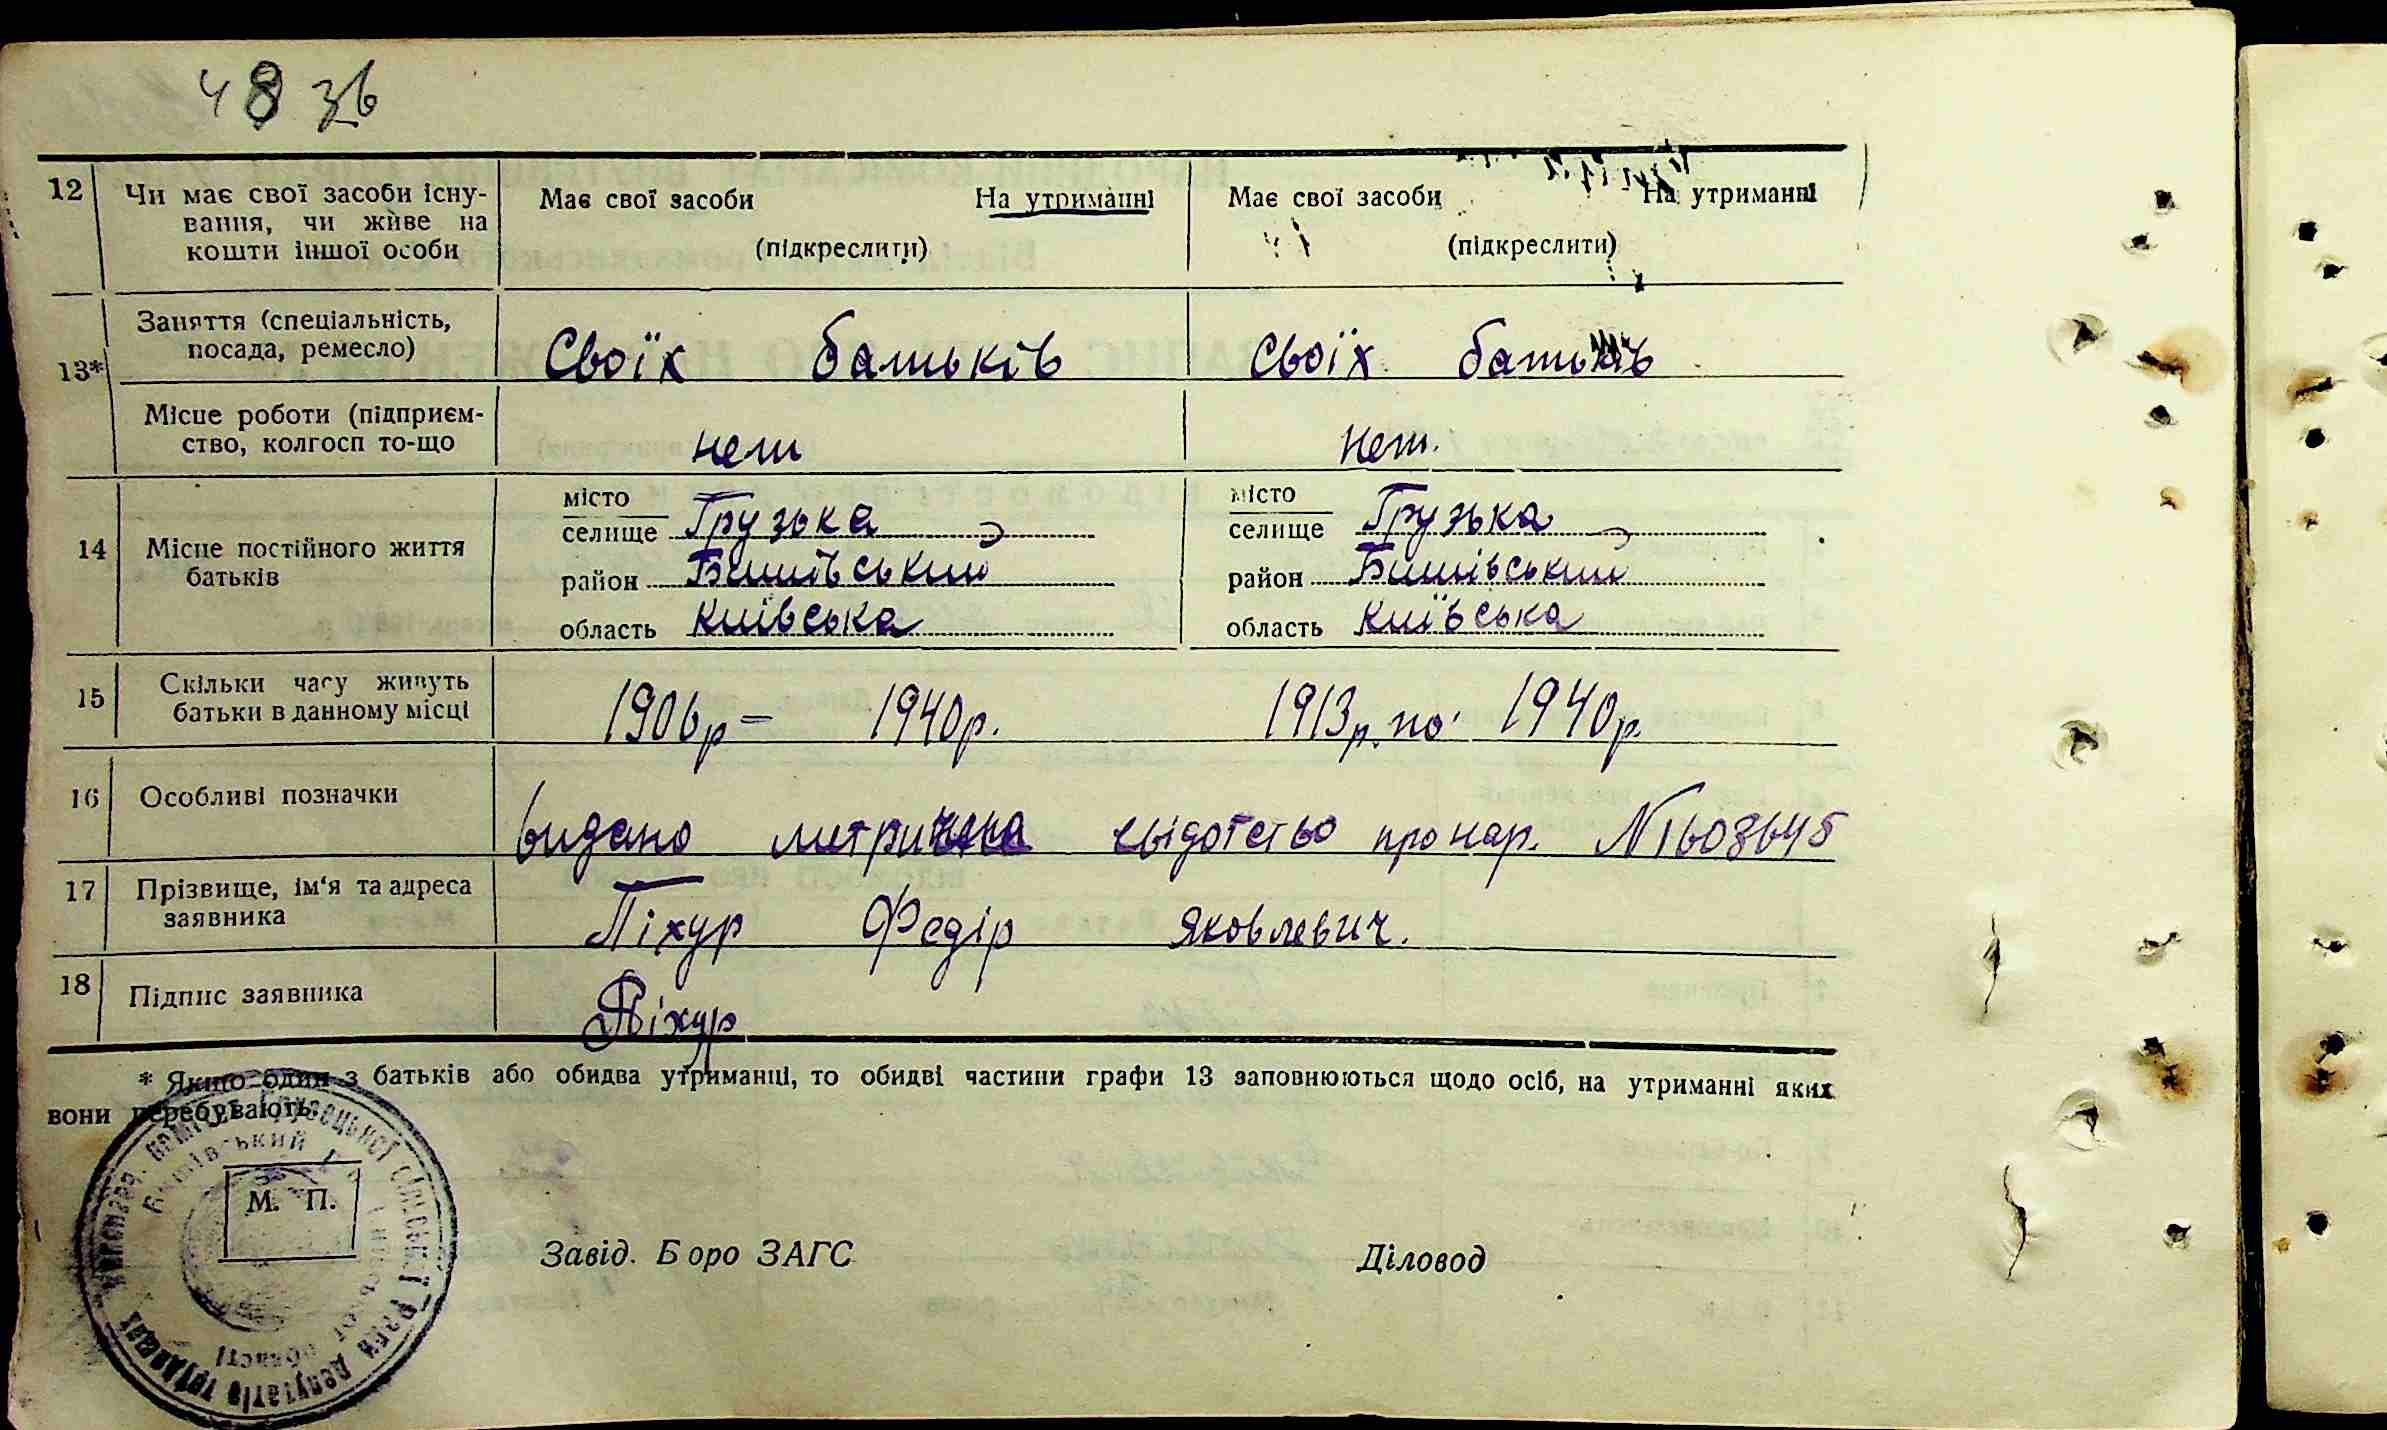 48 зв
12 Чи має свої засоби існу- Має свої засоби На утриманні Має свої засоби На утриманні
вання, чи живе на
кошти іншої особи (підкреслити) (підкреслити)
13* Заняття (спеціальність,
посада, ремесло) Своїх батьків Своїх батьків
Місце роботи (підприєм-
ство, колгосп то-що нет нет.
місто місто
14 Місце постійного життя селище Грузька селище Грузька
батьків район Бишівський район Бишівський
область Київська область Київська
15 Скільки часу живуть
батьки в данному місці 1906р – 1940р. 1913р. по 1940р.
16 Особливі позначки
видано метричне свідотство про нар. N1608645
17 Прізвище, ім'я та адреса
заявника Піхур Федір Яковлевич.
18 Підпис заявника Піхур
* Якщо один з батьків або обидва утриманці, то обидві частини графи 13 заповнюються щодо осіб, на утриманні яких
вони перебувають.
М. П.
Завід. Боро ЗАГС Діловод
Грузецької сільської ради депутатів трудящих
області